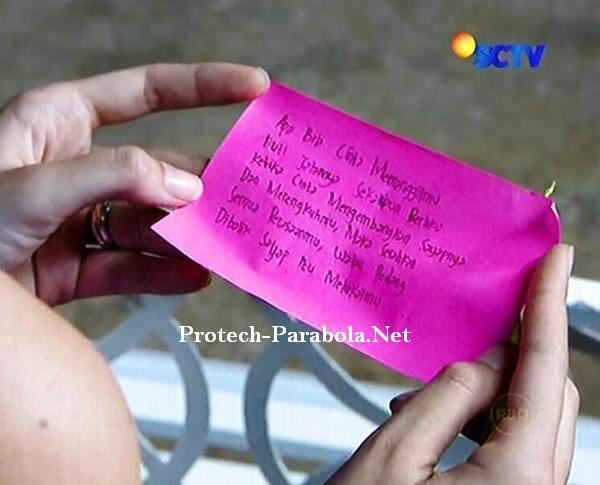 SCTV
Apa Bila Cinta Memanggilmu
Ikuti Jalannya Sekalipun Berliku
Ketika Cinta Mengembangkan Sayapnya
Dan Merengkuhmu, Maka Serahkan
Semua Perasaanmu, Walau Pedang
Dibalik Sayap Itu Melukaimu
Protech-Parabola.Net